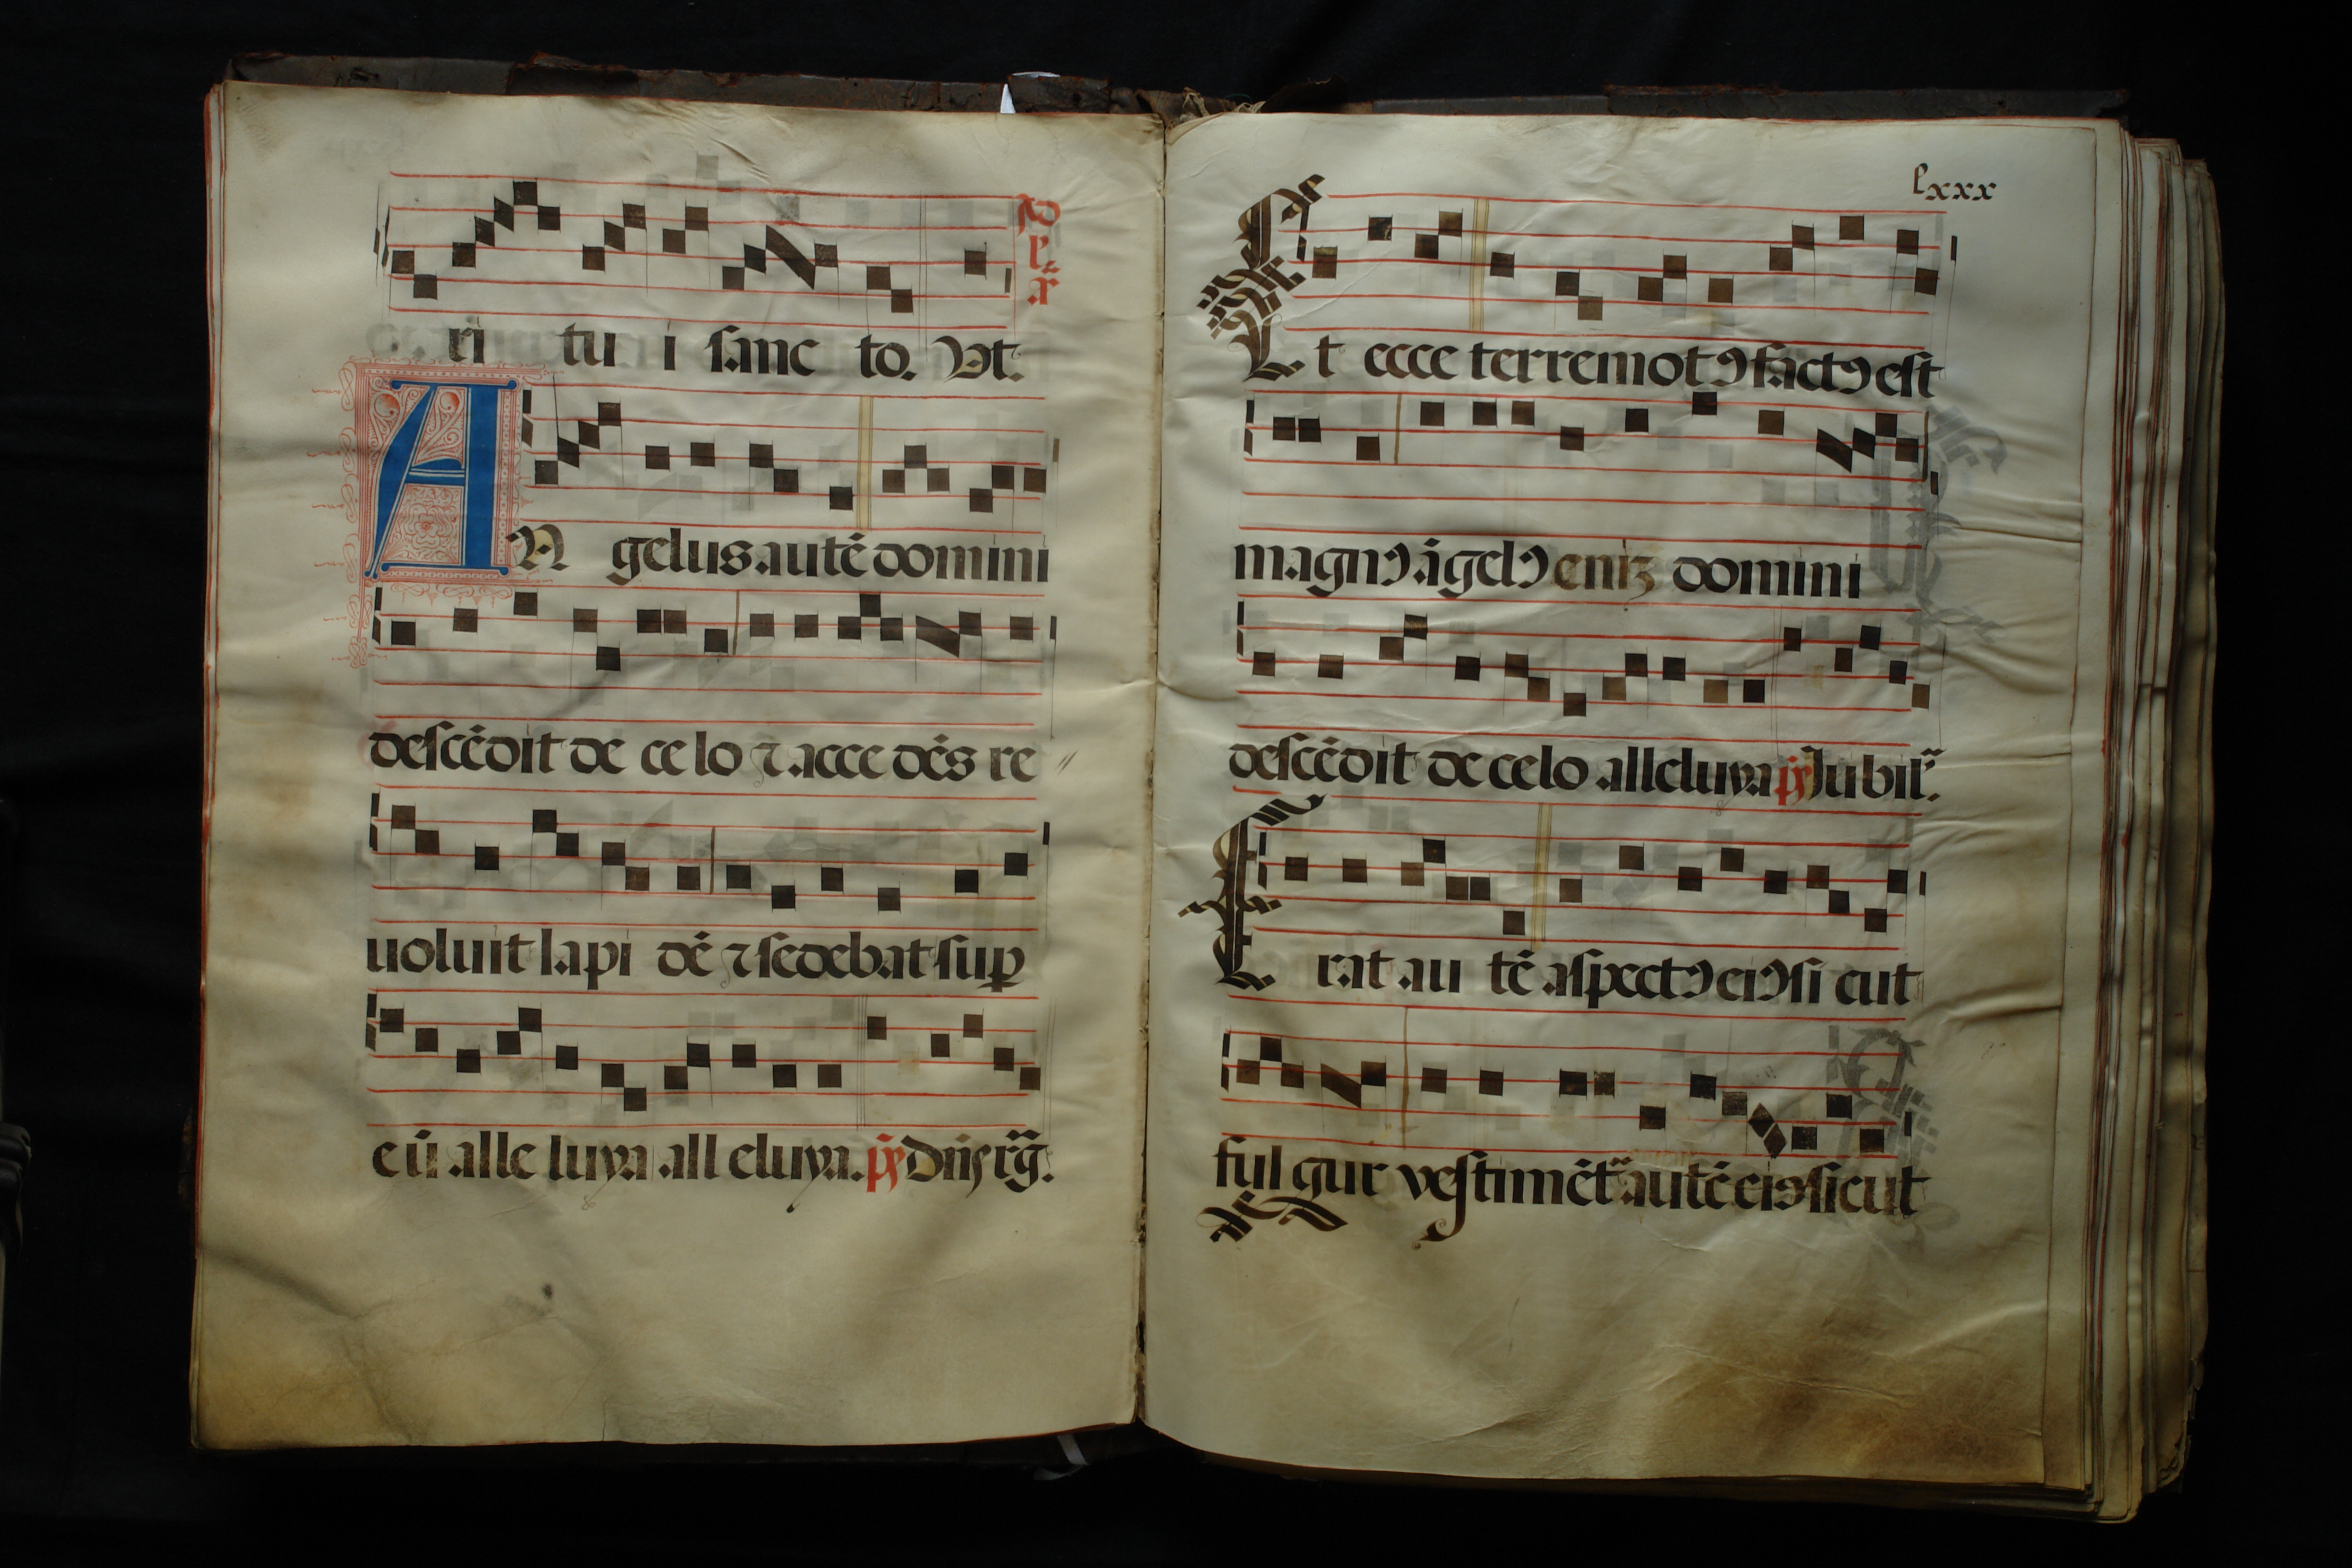 ri tu i sanc to. Ut.
AN gelus autē domini
descēdit de ce lo ⁊ acce dēs re
uoluit lapi dē ⁊ sedebat sup̄
eū alle luya all eluya. p̄s Dn̄s rḡ.
lxxx
Et ecce terremotꝰ factꝰ est
magnꝰ āgelꝰ eniꝫ domini
descēdit de celo alleluya p̄s Jubil̄.
Erat au tē aspectꝰ eiꝰ si cut
ful gur vestimēt̄ autē eiꝰ sicut